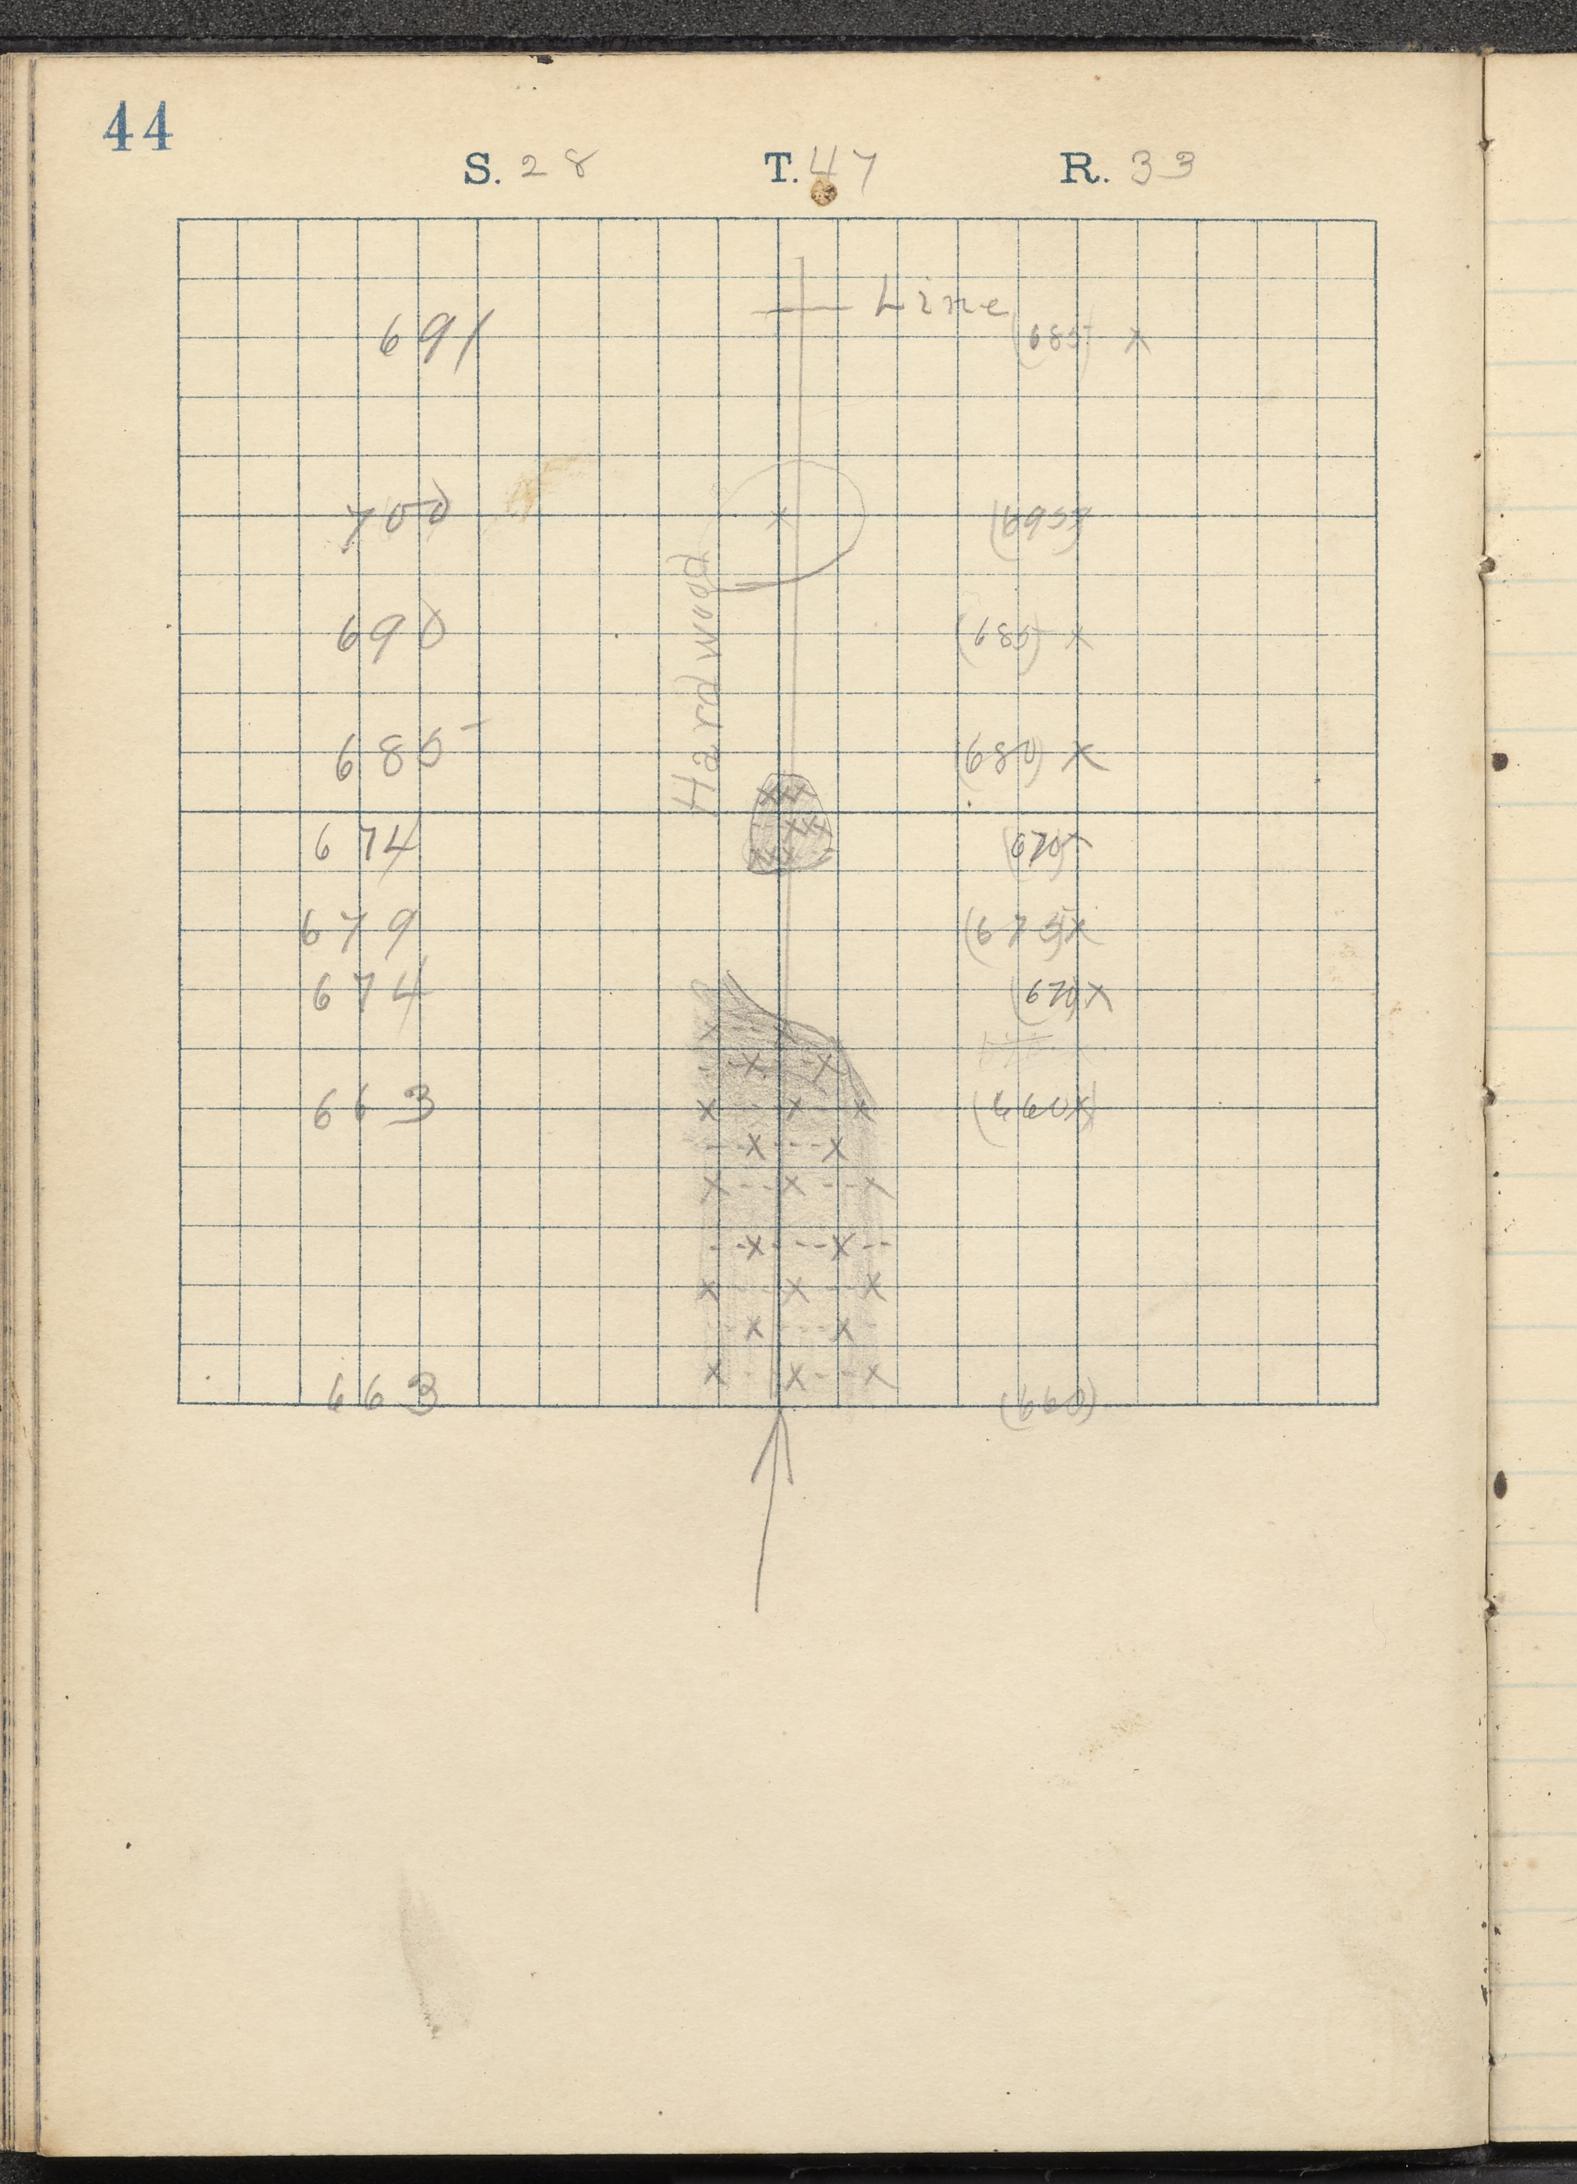 44
S. 28 T. 47 R. 33
Line
691 (685) x
700 (695)
690 (685) x
Hardwood
685 (680) x
674 (670)
679 (675) x
674 (670) x
663 (660 x)
663 (660)